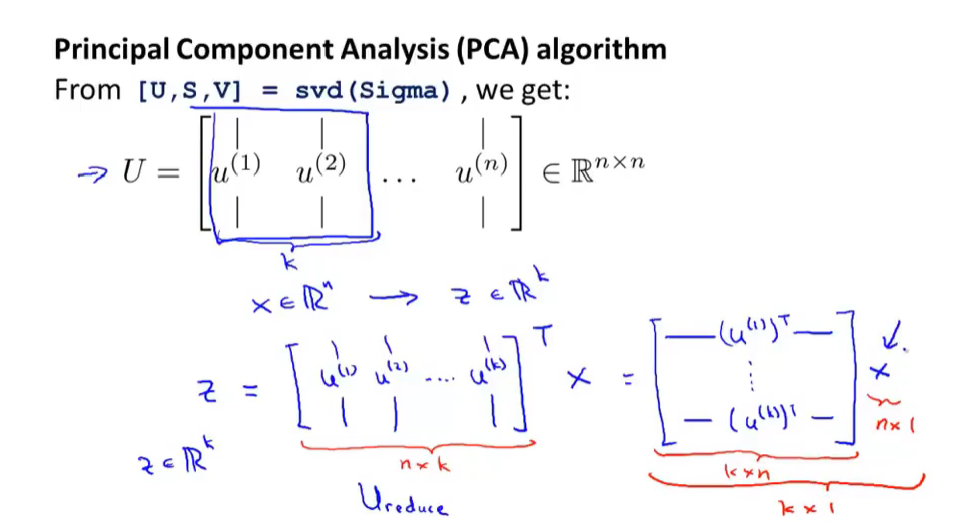 Principal Component Analysis (PCA) algorithm
From [U,S,V] = svd(Sigma), we get:
→ U = [ u^(1) u^(2) ... u^(n) ] ∈ ℝ^{n×n}
k
x ∈ ℝ^n → z ∈ ℝ^k
z = [ u^(1) u^(2) .... u^(k) ]^T x = [ —(u^(1))^T— ⋮ —(u^(k))^T— ] x
n×1
z ∈ ℝ^k
n×k
k×n
U reduce
k×1